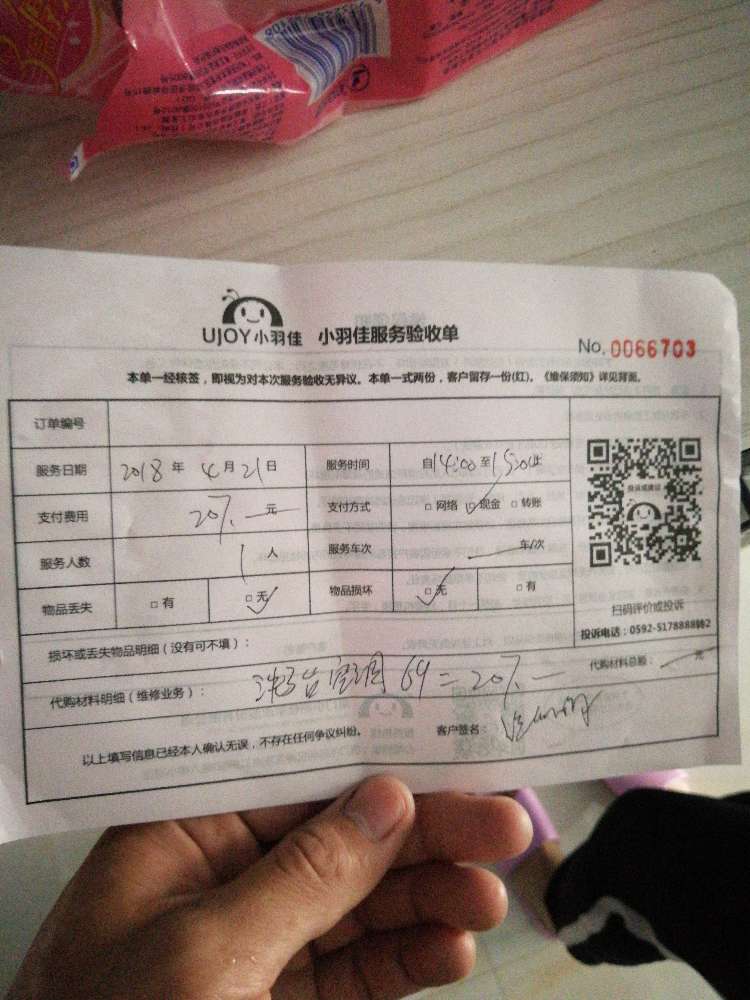 UJOY小羽佳 小羽佳服务验收单
No. 0066703
本单一经核签，即视为对本次服务验收无异议。本单一式两份，客户留存一份(红)。《维保须知》详见背面。
订单编号
服务日期 2018 年 4 月 21 日 服务时间 自 14:00 至 15:00 止
支付费用 207. 元 支付方式 □ 网络 □ 现金 □ 转账
服务人数 1 人 服务车次 车/次
物品丢失 □ 有 □ 无 物品损坏 □ 无 □ 有
投诉或建议
扫码评价或投诉
投诉电话：0592-5178888转2
损坏或丢失物品明细（没有可不填）：
代购材料明细（维修业务）： 69 = 207. 代购材料总额： 元
以上填写信息已经本人确认无误，不存在任何争议纠纷。 客户签名：